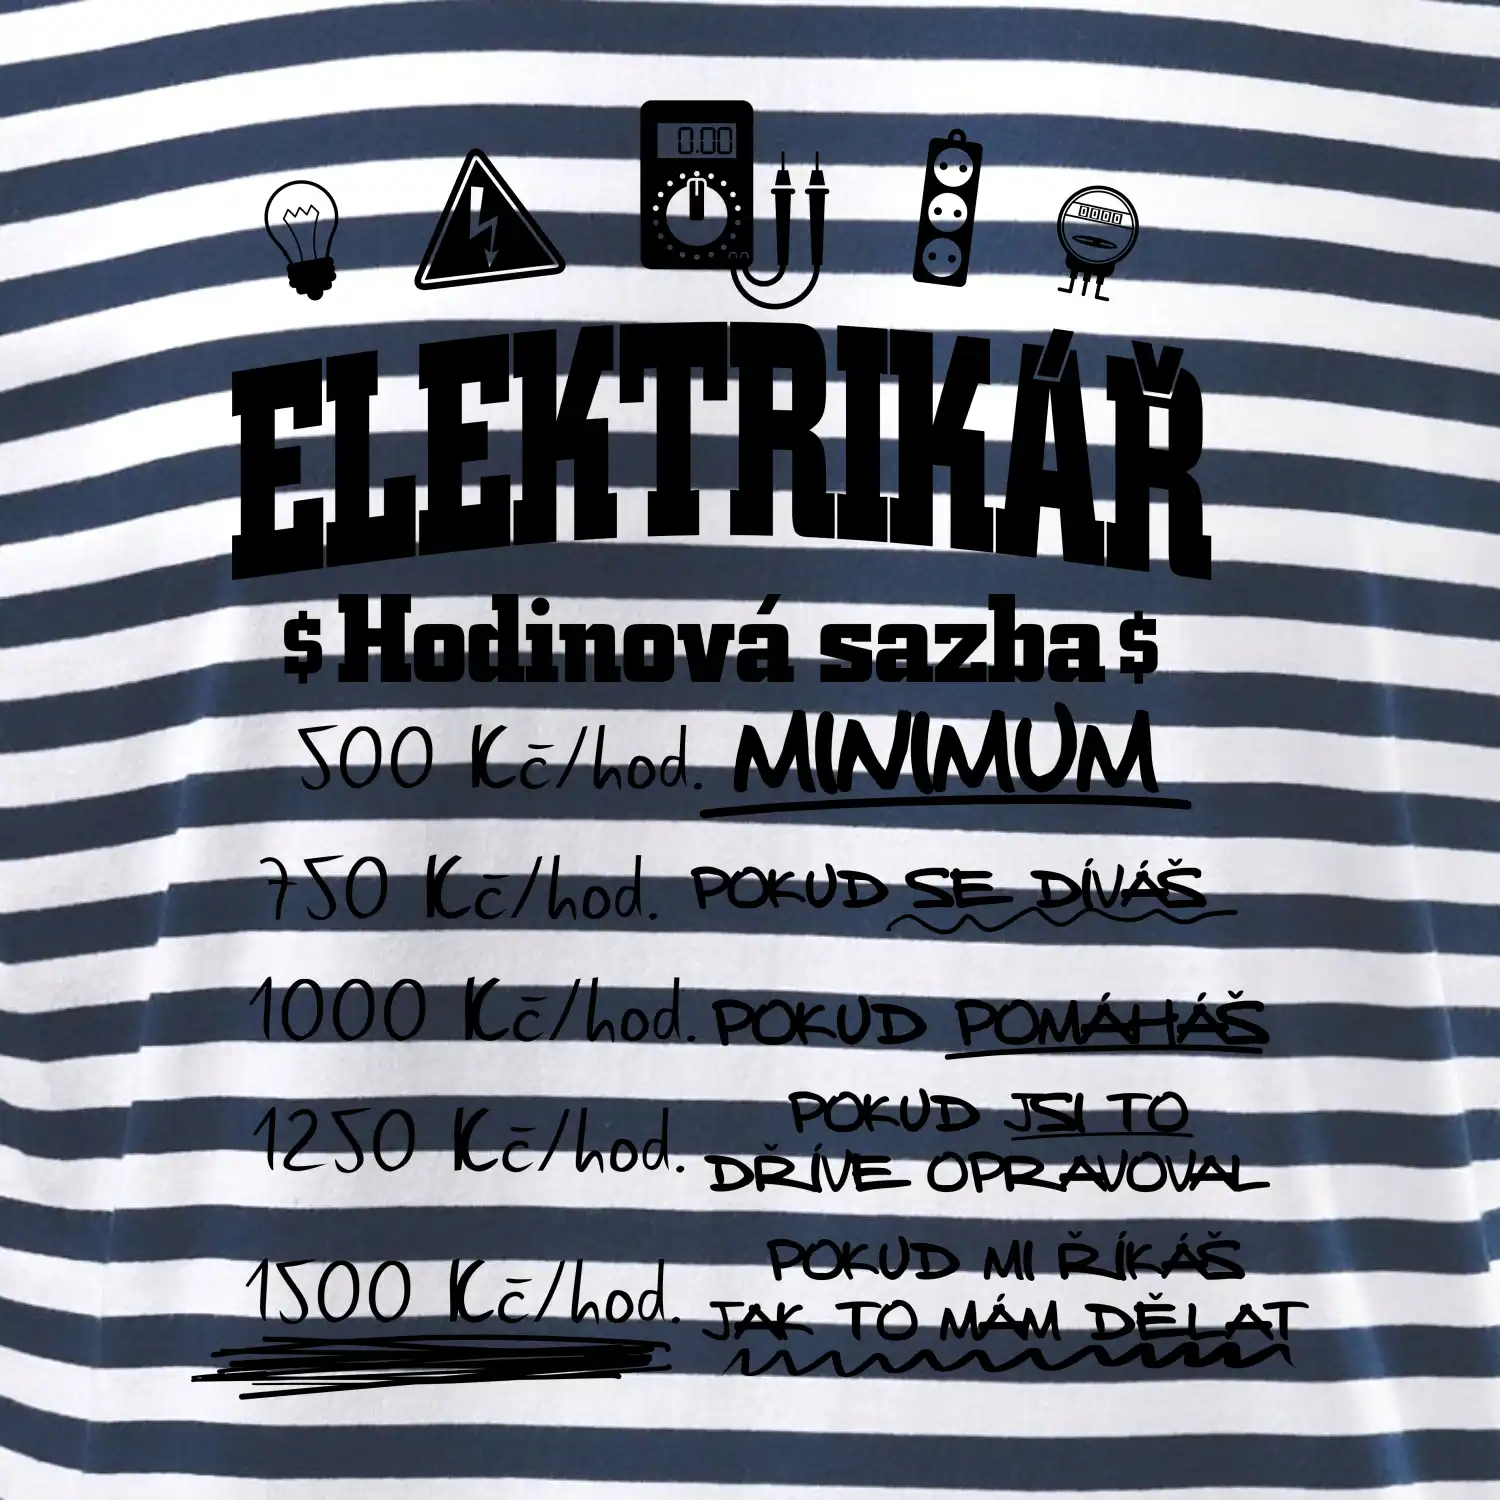 0.00
0000
ELEKTRIKÁŘ
$ Hodinová sazba $
500 Kč/hod. MINIMUM
750 Kč/hod. POKUD SE DÍVÁŠ
1000 Kč/hod. POKUD POMÁHÁŠ
1250 Kč/hod. POKUD JSI TO
DŘÍVE OPRAVOVAL
1500 Kč/hod. POKUD MI ŘÍKÁŠ
JAK TO MÁM DĚLAT